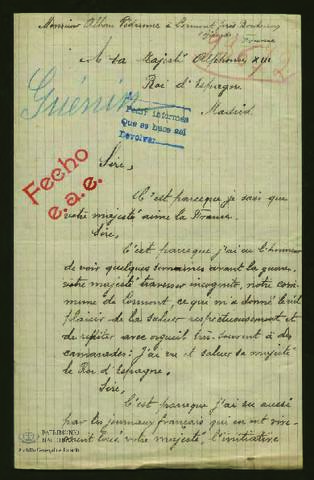 Monsieur Alban à Cormont près
France
A Sa Majesté Alphonse XIII
Roi d'Espagne
Madrid
Guénin
Pedir informes
Que se hace así
Devolver
Fecho
e.a.e.
Sire,
C'est parceque je sais que
votre majesté aime la France.
Sire,
C'est parceque j'ai eu l'honneur
de voir quelques semaines avant la guerre,
votre majesté traverser incognito, notre com-
mune de Cormont, ce qui m'a donné le
plaisir de la saluer respectueusement et
de répéter avec orgueil très souvent à des
camarades: J'ai vu et saluer sa majesté
le Roi d'Espagne.
Sire,
C'est parceque j'ai su aussi
par les journaux français qui en ont
votre majesté, l'initiative
PATRIMONIO
NACIONAL